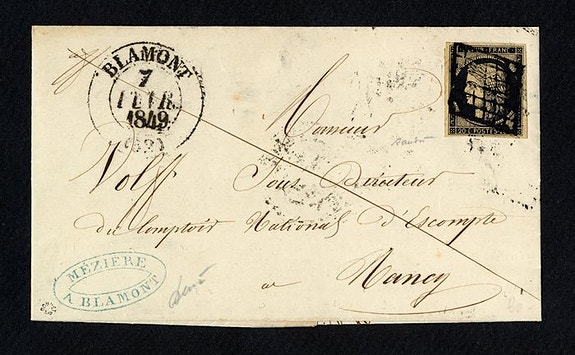 BLAMONT
7
FEVR.
1849
(52)
REPUB. FRANC.
20 C. POSTES
Monsieur
Wolff Sous Directeur
du Comptoir National d'Escompte
a Nancy
MÉZIERE
A BLAMONT